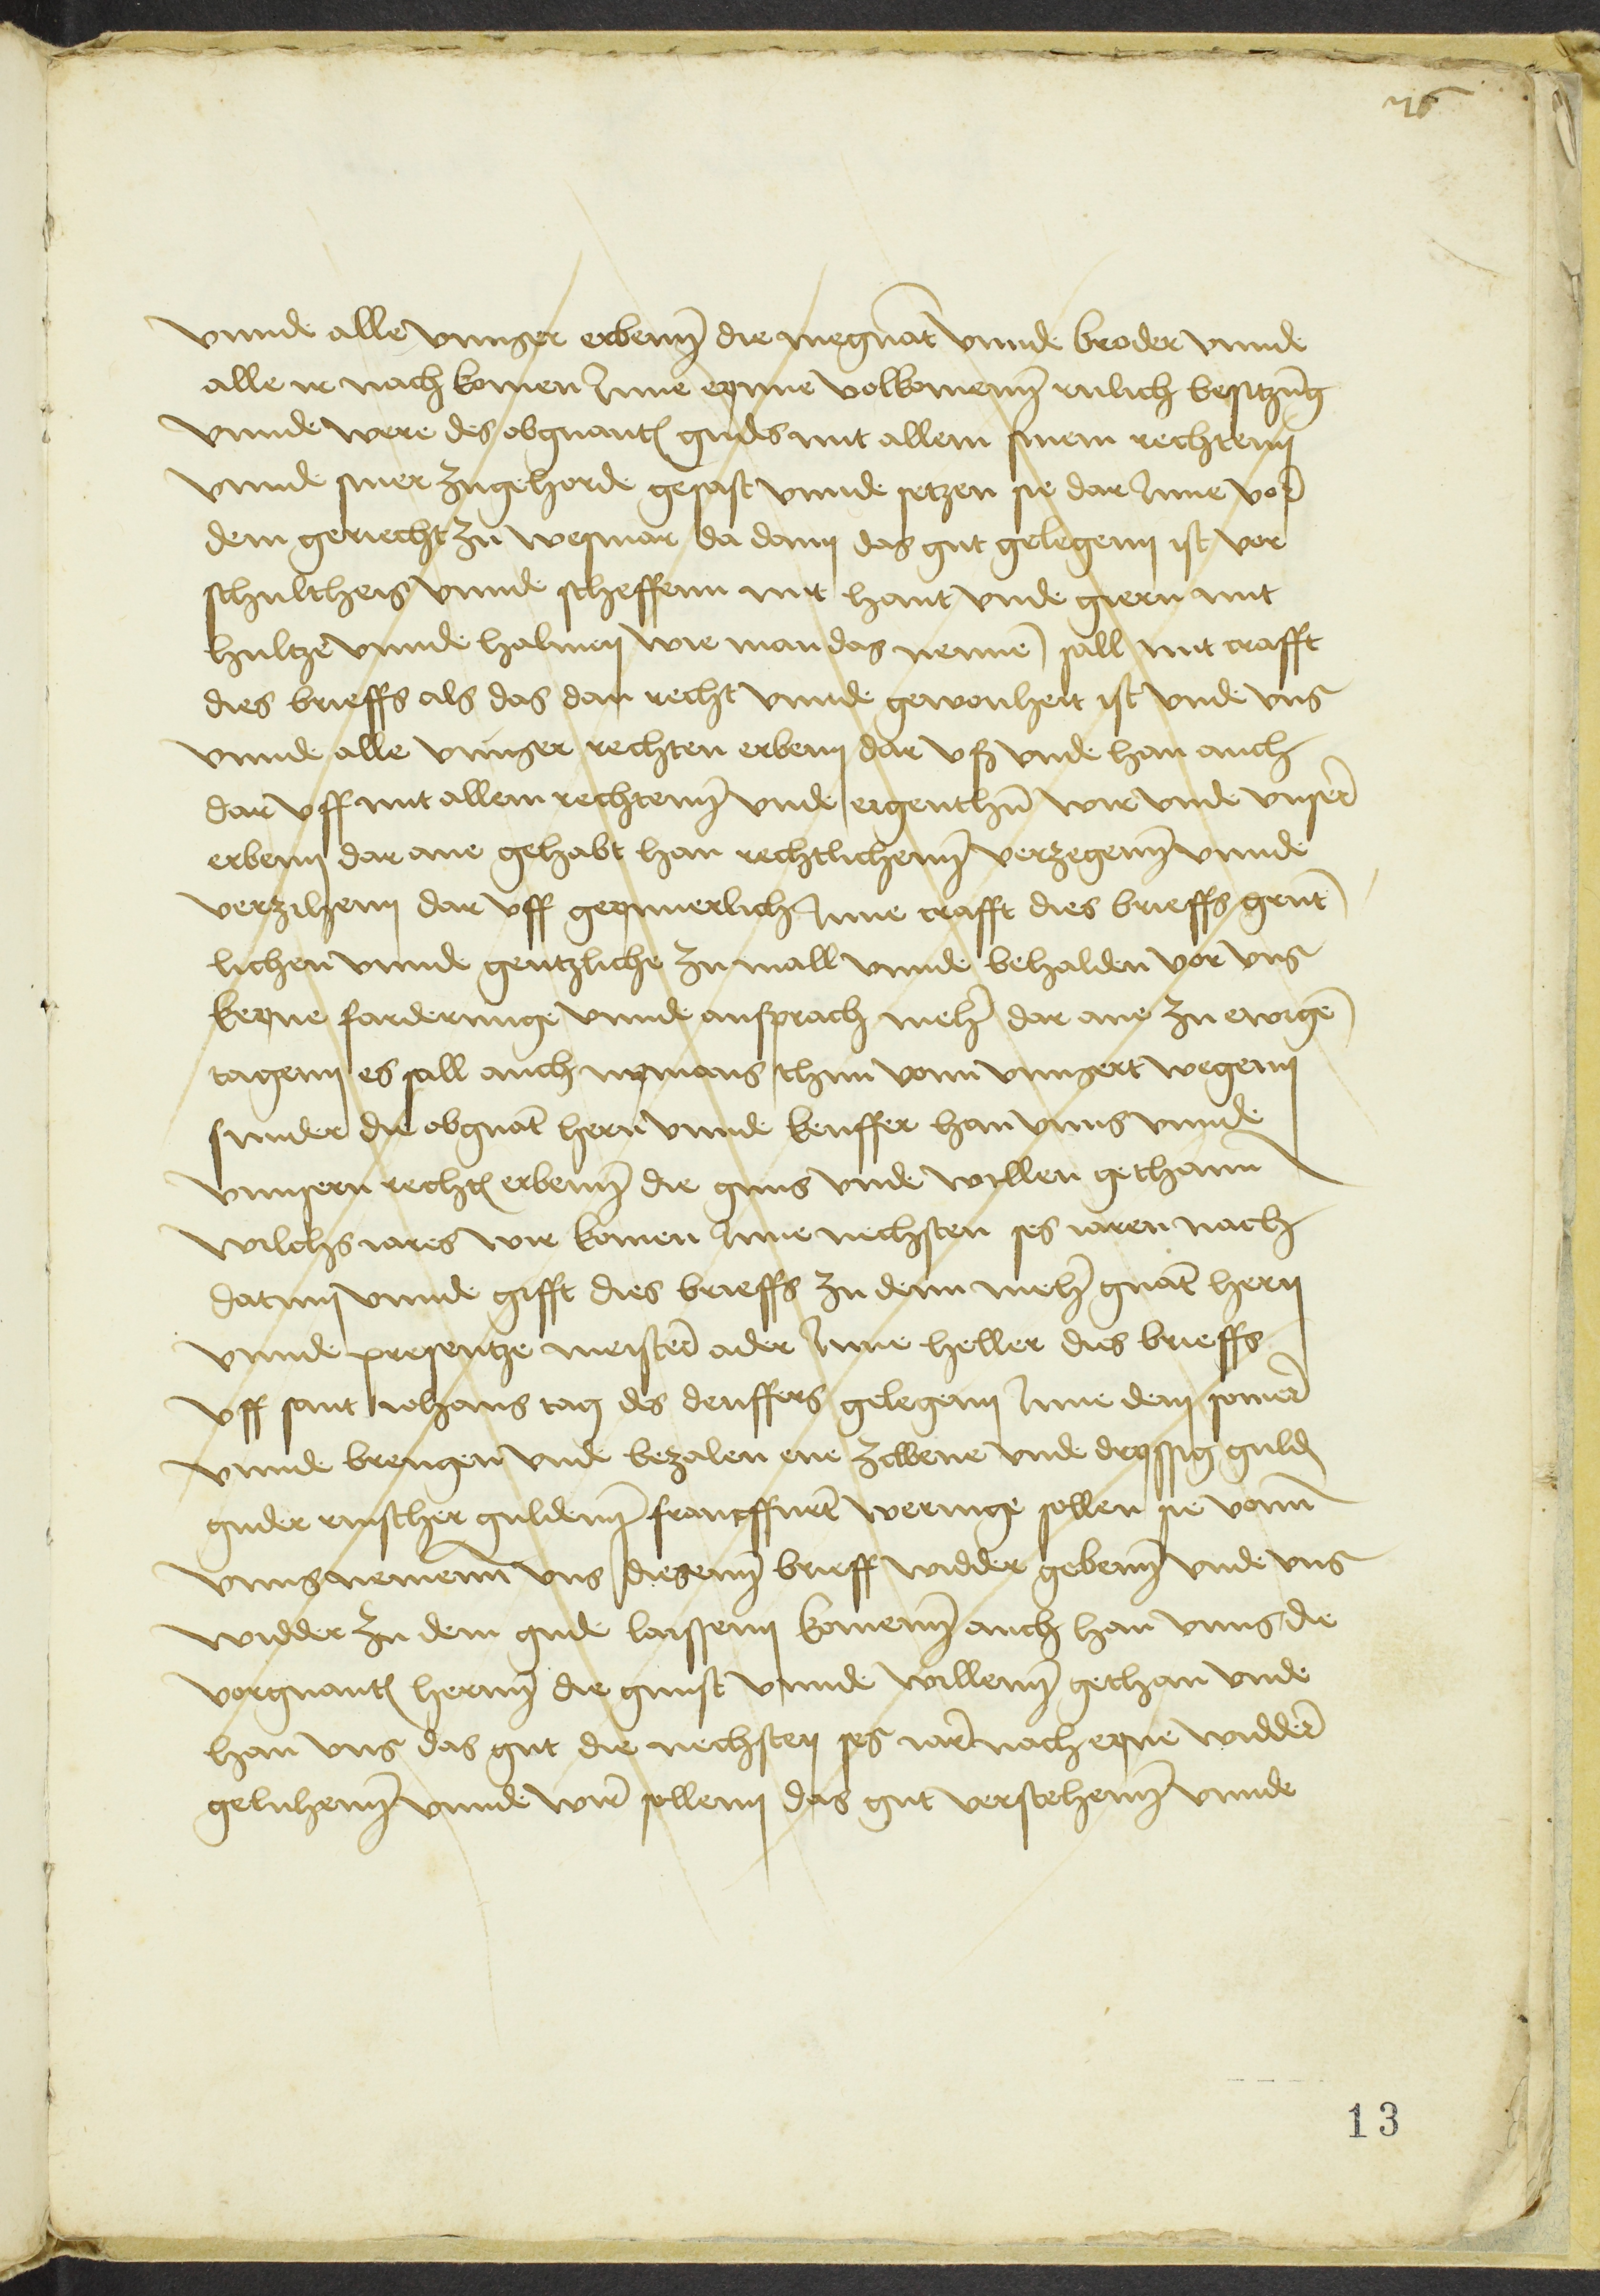 vnnde alle vnnser erbenn die megnāt vnnde broder vnnde
alle ir nach komen Inne eynne volkomenn rulich besitzūg
vnnde were des obgnantē gudes mit allem sinem rechtenn
vnnde siner zugehorde gesast vnnde setzen sie dar Inne vor
dem geriecht zu wesmar da dann das gut gelegenn ist vor
schultheis vnnde scheffenn mit hant vnde giern mit
hultze vnnde halmen wie man das nennē sall mit crafft
dies brieffs als das dan recht vnnde gewonheit ist vnde vns
vnnde alle vnnser rechten erbenn dar vß vnde han auch
dar vff mit allem rechtenn vnde eigenthū wir vnde vnser
erbenn dar ane gehabt han rechtlichenn verzegenn vnnde
verzihenn dar vff geynnerlich Inne crafft dies brieffs grūt
lichen vnnde gentzliche zu mall vnnde behalden vor vns
keyne farderunge vnnde ansprach meh dar ane zu ewigē
tagenn es sall auch nymans thun vonn vnnsert wegenn
sunder die obgnāt hern vnnde keuffer han vnns vnnde
vnnsern rechtē erbenn die guns vnde willen gethann
wilchs iares wir komen Inne nechsten ses iaren nach
datum vnnde gifft dies brieffs zu denn meh gnāt hern
vnnde presentze meister ader Inne heller dies brieffs
vff sant iohans tag des deuffers gelegenn Inne dem somer
vnnde brengen vnde bezalen ene zcwene vnde dryssig guldē
guder rinscher guldenn franckffurt werunge sollen sie vonn
vnns nemenn vns diesenn brieff widder gebenn vnde vns
widder zu dem gude laissenn komenn auch han vnns die
vorgnantē hernn die gunst vnnde willenn gethan vnde
han vns das gut die nechsten ses iar nach eyne widder
geluhenn vnnde wir sollenn das gut verstehenn vnnde
13